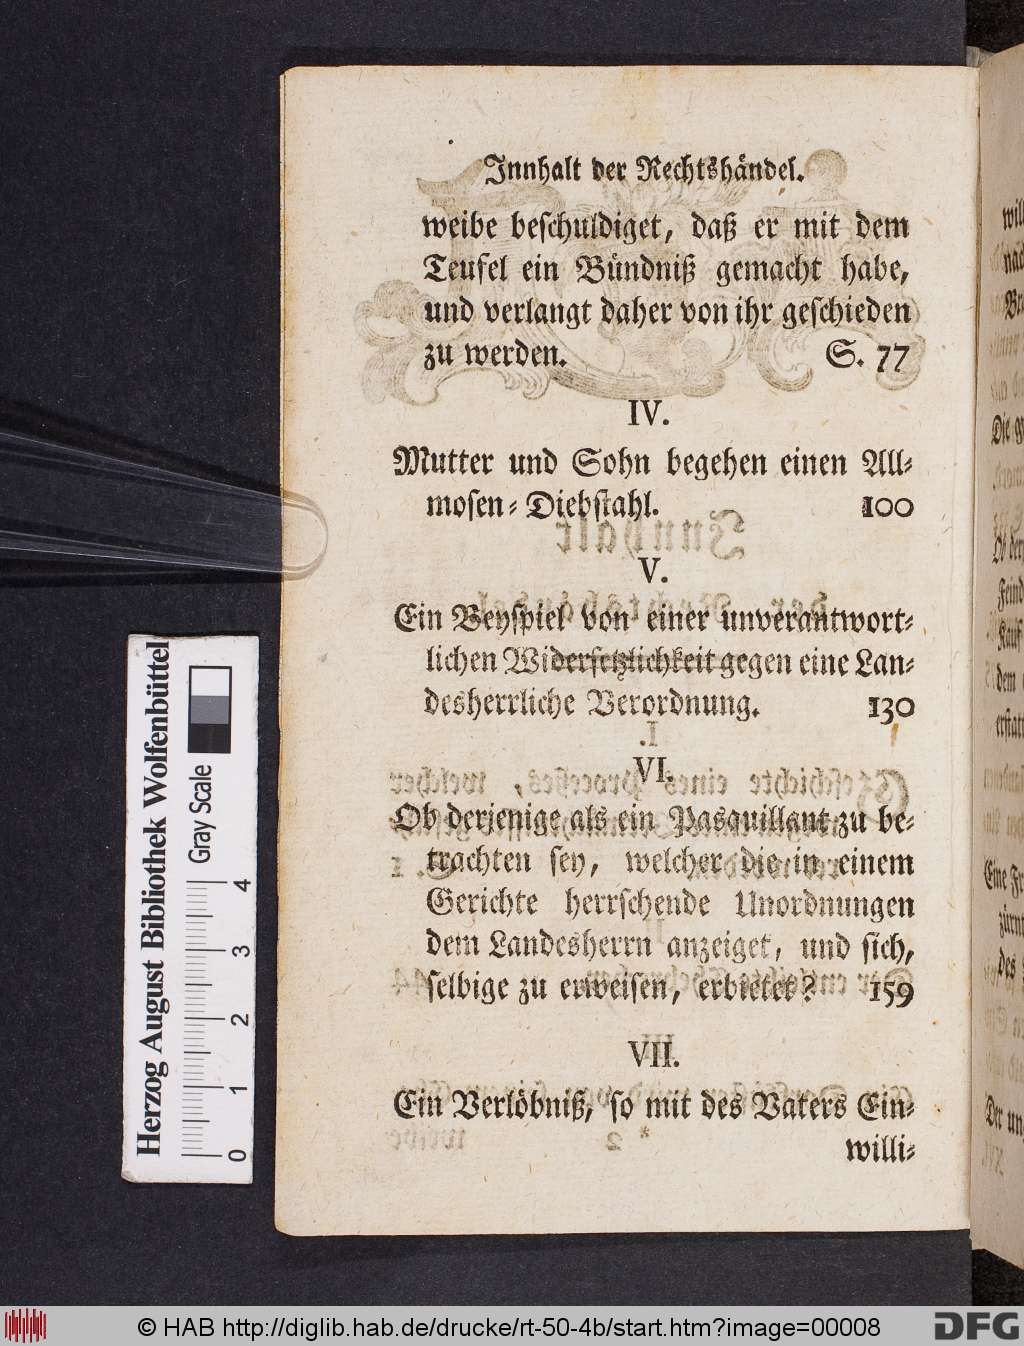 Innhalt der Rechtshändel.
weibe beschuldiget, daß er mit dem
Teufel ein Bündniß gemacht habe,
und verlangt daher von ihr geschieden
zu werden. S. 77
IV.
Mutter und Sohn begehen einen All-
mosen-Diebstahl. 100
V.
Ein Beyspiel von einer unverantwort-
lichen Widersetzlichkeit gegen eine Lan-
desherrliche Verordnung. 130
VI.
Ob derjenige als ein Pasquillant zu be-
trachten sey, welcher die in einem
Gerichte herrschende Unordnungen
dem Landesherrn anzeiget, und sich,
selbige zu erweisen, erbietet? 159
VII.
Ein Verlöbniß, so mit des Vaters Ein-
willi-
Herzog August Bibliothek Wolfenbüttel
Gray Scale
0 1 2 3 4
© HAB http://diglib.hab.de/drucke/rt-50-4b/start.htm?image=00008
DFG